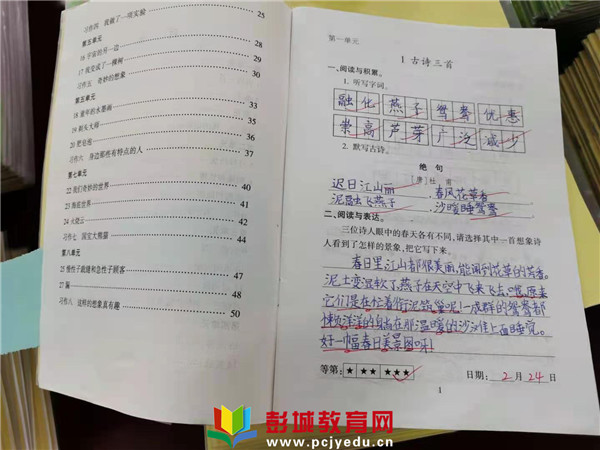 习作四 我做了一项实验 25
第五单元
16 宇宙的另一边 28
17 我变成了一棵树 30
习作五 奇妙的想象 31
第六单元
18 童年的水墨画 33
19 剃头大师 35
20 肥皂泡 36
习作六 身边那些有特点的人 37
第七单元
22 我们奇妙的世界 40
23 海底世界 41
24 火烧云 42
习作七 国宝大熊猫 44
第八单元
25 慢性子裁缝和急性子顾客 45
27 漏 47
习作八 这样的想象真有趣 50
第一单元
1 古诗三首
一、阅读与积累。
1. 听写字词。
融化 燕子 鸳鸯 优惠
崇高 芦芽 广泛 减少
2. 默写古诗。
绝句
[唐]杜甫
迟日江山丽,春风花草香
泥融飞燕子,沙暖睡鸳鸯
二、阅读与表达。
三位诗人眼中的春天各有不同,请选择其中一首想象诗
人看到了怎样的景象,把它写下来。
春日里,江山都很美丽,能闻到花草的芳香。
泥土变湿软了,燕子在天空中飞来飞去,嘿,原来
它们是在忙着衔泥筑巢呢!一成群的鸳鸯都
懒洋洋的躺在那温暖的沙洲上面睡觉。
好一幅春日美景图呀!
等第: ★ ★★ ★★★
日期: 2 月 24 日
1
彭城教育网
www.pcjyedu.cn